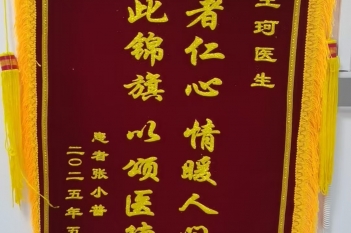 珂医生
者仁心 情暖人
此锦旗 以项医
患者张小普
二〇二五年五